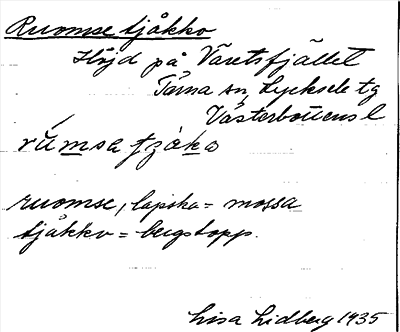 Ruomse tjåkko
Höjd på Våretsfjället
Tärna sn, Lycksele tg
Västerbottens l
rúmsa tjåka
ruomse, lapska = mossa
tjåkko = bergstopp.
Lisa Lidberg 1935